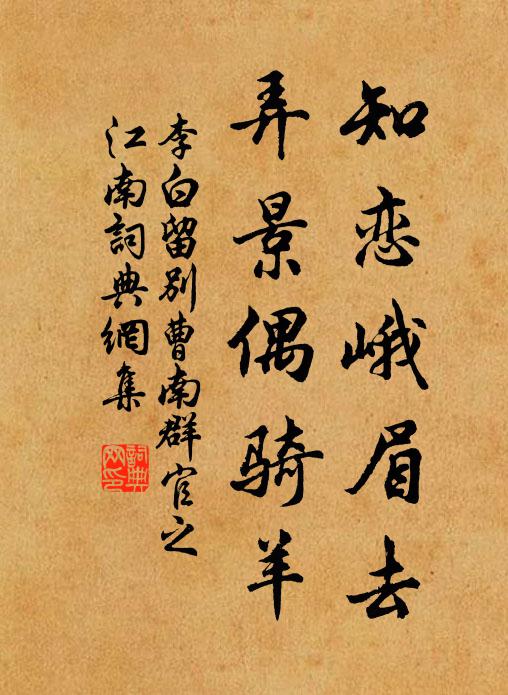 知恋峨眉去
弄景偶骑羊
李白留别曹南群官之
江南詞典網集
詞典網印